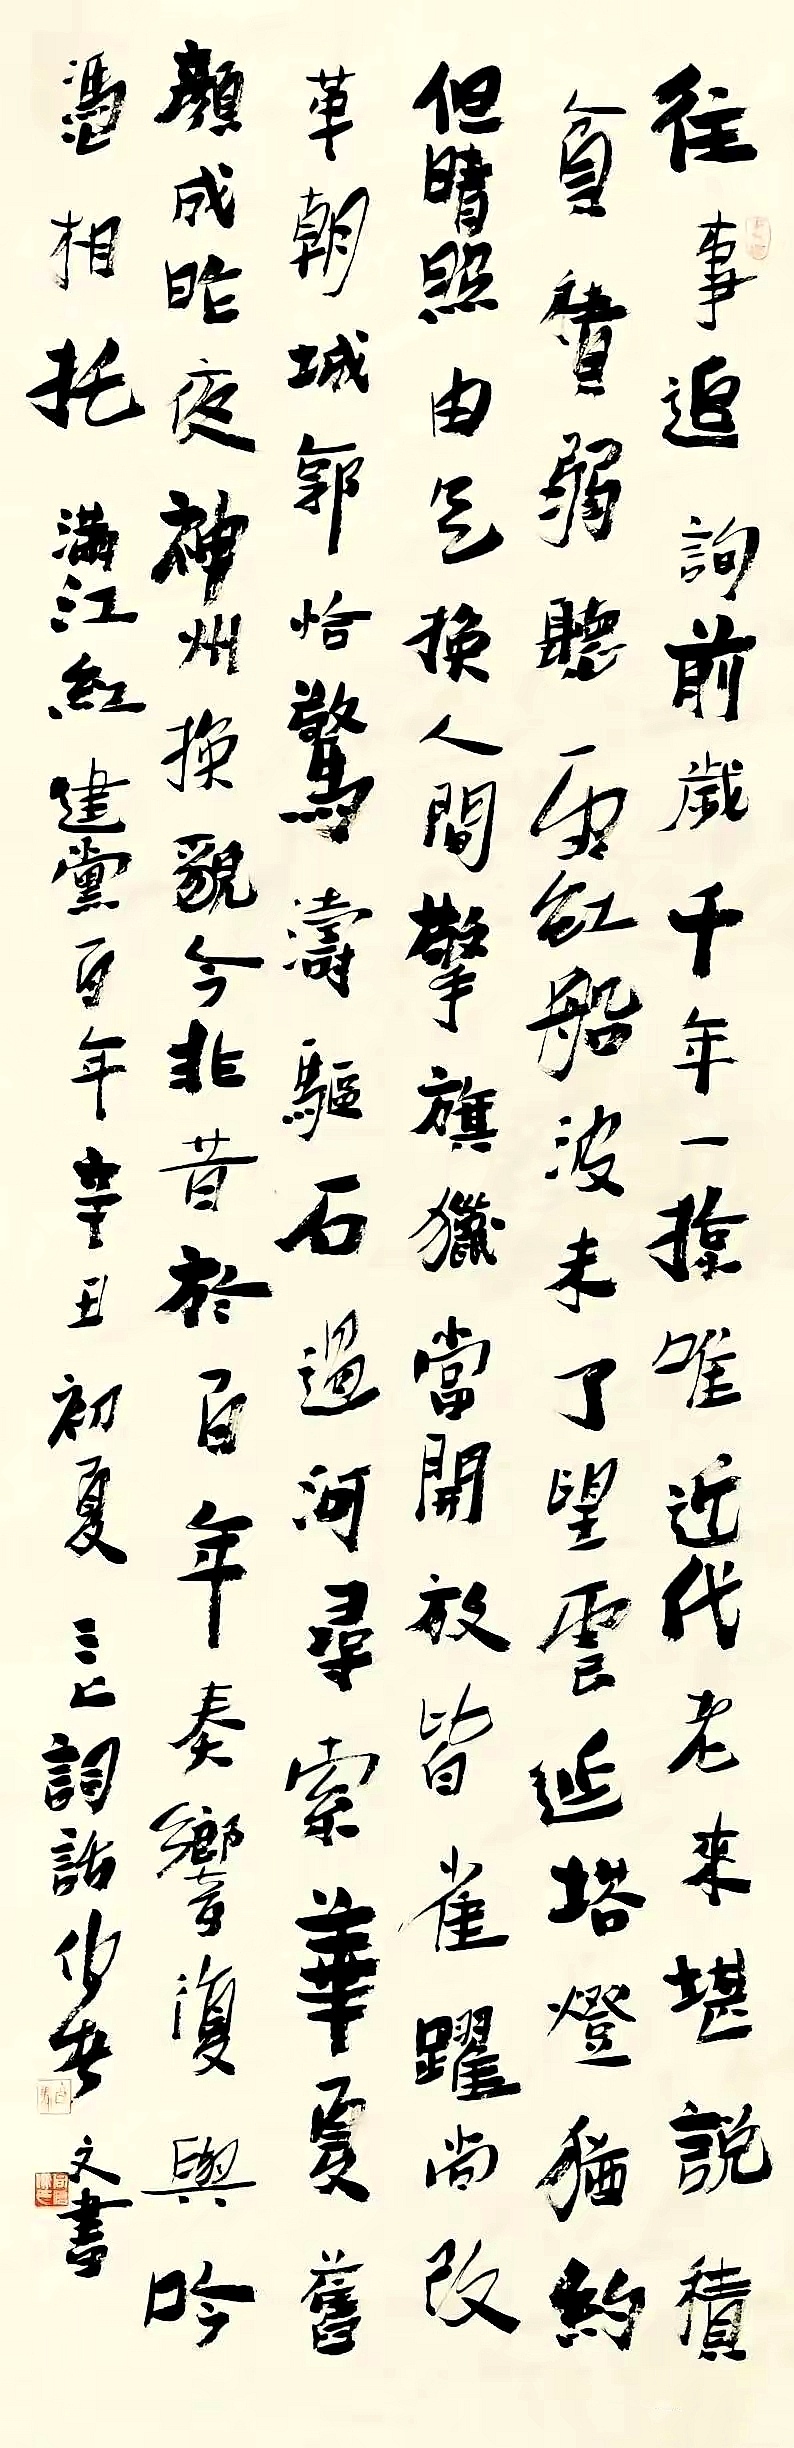 往事追詢前歲千年一掠唯近代老來堪說積
貧積弱聽雨紅船波未了望雲延塔燈猶約
但晴照由是換人間擎旗獵當開放皆雀躍尚改
革朝城郭恰驚濤驅石過河尋索華夏舊
顏成昨夜神州換貌今非昔於百年奏響復興吟
憑相托 滿江紅 建黨百年辛丑初夏 三上詞話 文書